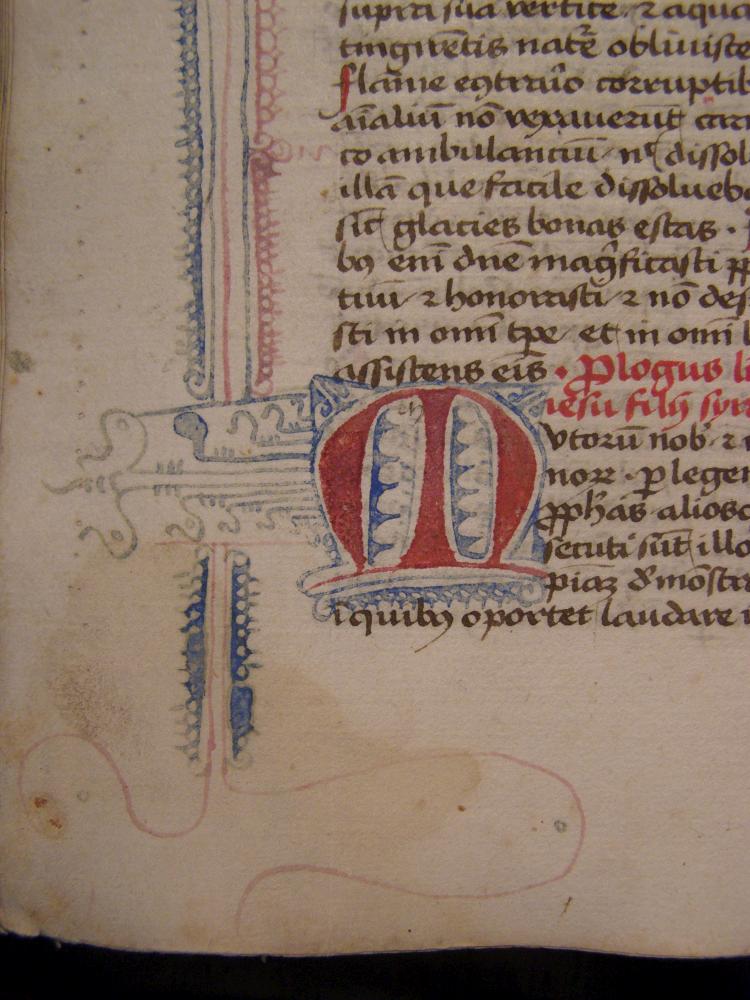 supra sua vertice · ⁊ aqua
tinguētis natē obliuisce
flāme econtrāıo corruptib
aīaliū nō vexauerūt car
co ambulanciū · nͨ dissol
illā que facile dissolueb
sic glacies bonas escas ·
bꝯ enī dn̄e mag̅ficasti pp
tuū · ⁊ honorasti · ⁊ nō des
sti in omī tp̄e · et in omī l
assistens eis · Plogus li
iesu filij syr
M vtorū nob̄ ⁊
nore · ꝑ legem
ꝓphās aliosq
secuti sūt illo
piaꝝ dmōstr
ī quibꝯ oportet laudare i